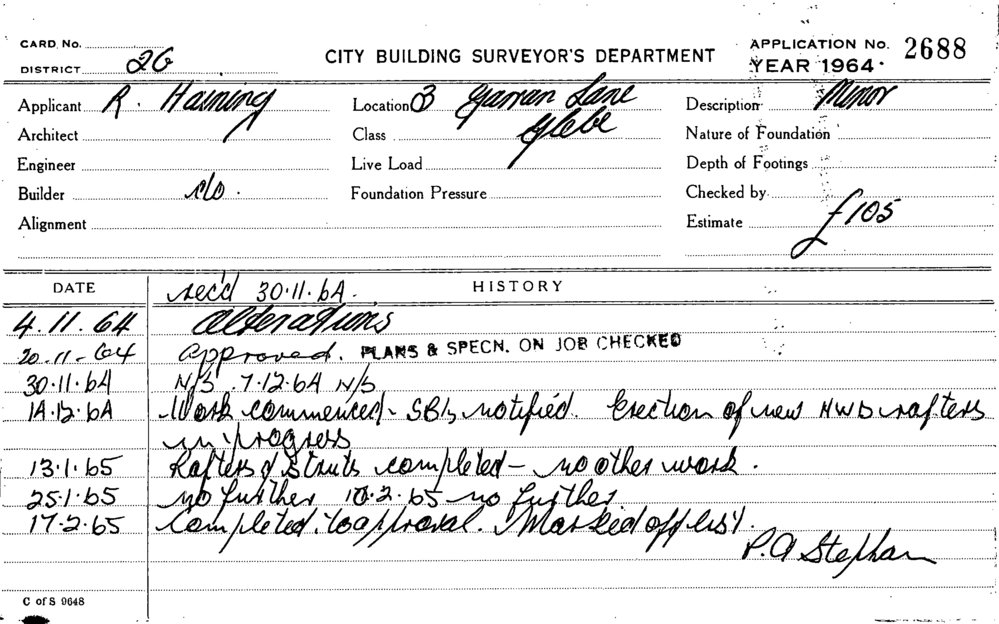 CARD. No.
DISTRICT 26
CITY BUILDING SURVEYOR'S DEPARTMENT
APPLICATION No. 2688
YEAR 1964.
Applicant R. Haining
Location 3 Yarran Lane
Description Minor
Architect
Class Glebe
Nature of Foundation
Engineer
Live Load
Depth of Footings
Builder c/o.
Foundation Pressure
Checked by
Alignment
Estimate £105
DATE
HISTORY
recd 30.11.64.
4.11.64 Alterations
20-11-64 Approved. PLANS & SPECN. ON JOB CHECKED
30.11.64 N/S 7.12.64 N/S
14.12.64 Work commenced - SBI, notified. Erection of new HWD rafters
in progress
13.1.65 Rafters & Struts completed - no other work.
25.1.65 no further 10.2.65 no further
17.2.65 Completed to approval. Marked off list.
P.A Stephan
C of S 9648